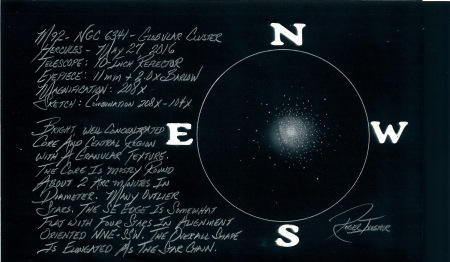 M92 - NGC 6341 - Globular Cluster
Hercules - May 27, 2016
Telescope: 10-Inch Reflector
Eyepiece: 11mm + 2.0x Barlow
Magnification: 208x
Sketch: Combination 208x-104x
Bright, well concentrated
Core And Central Region
With A Granular Texture.
The Core Is mostly Round
About 2 Arc minutes In
Diameter. Many Outlier
Stars. The SE Edge Is Somewhat
Flat with Four Stars In Alignment
Oriented NNE-SSW. The Overall Shape
Is Elongated As The Star Chain.
N
E
W
S